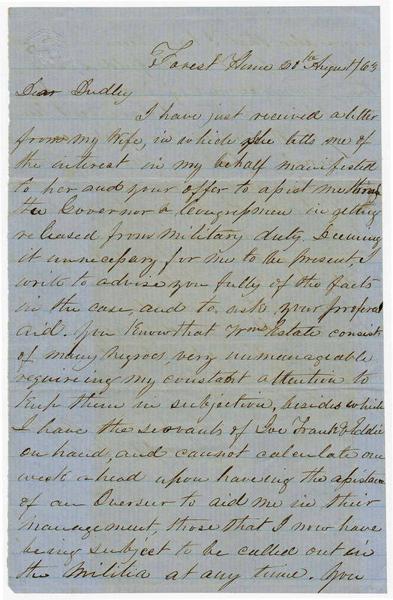 Forest Home 20th August/63
Dear Dudley
I have just received a letter
from my Wife, in which she tells me of
the interest in my behalf manifested
to her and your offer to assist me through
the Governor & Congressmen in getting
released from military duty. Deeming
it unnecessary for me to be present, I
write to advise you fully of the facts
in the case, and to ask your proposed
aid. You Know that Estate consists
of many Negroes, very unmanageable
requireing my constant attention to
Keep them in subjection, besides which
I have the servants of Joe Frank & Eddie
on hand, and cannot calculate one
week ahead upon haveing the assistance
of an Overseer to aid me in their
management, those that I now have
being subject to be called out in
the Militia at any time. You